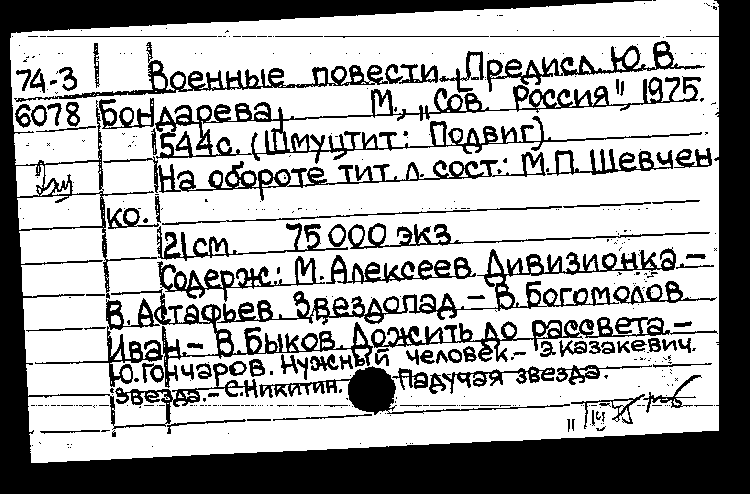 74-3 Военные повести. Предисл. Ю.В.
6078 Бондарева. М., „Сов. Россия", 1975.
544с. (Шмуцтит: Подвиг).
На обороте тит. л. сост.: М.П. Шевчен-
ко.
21 см. 75 000 экз.
Содерж.: М. Алексеев. Дивизионка.–
В. Астафьев. Звездопад.– В. Богомолов.
Иван.– В. Быков. Дожить до рассвета.–
Ю. Гончаров. Нужный человек.– Э. Казакевич.
Звезда.– С. Никитин. Падучая звезда.